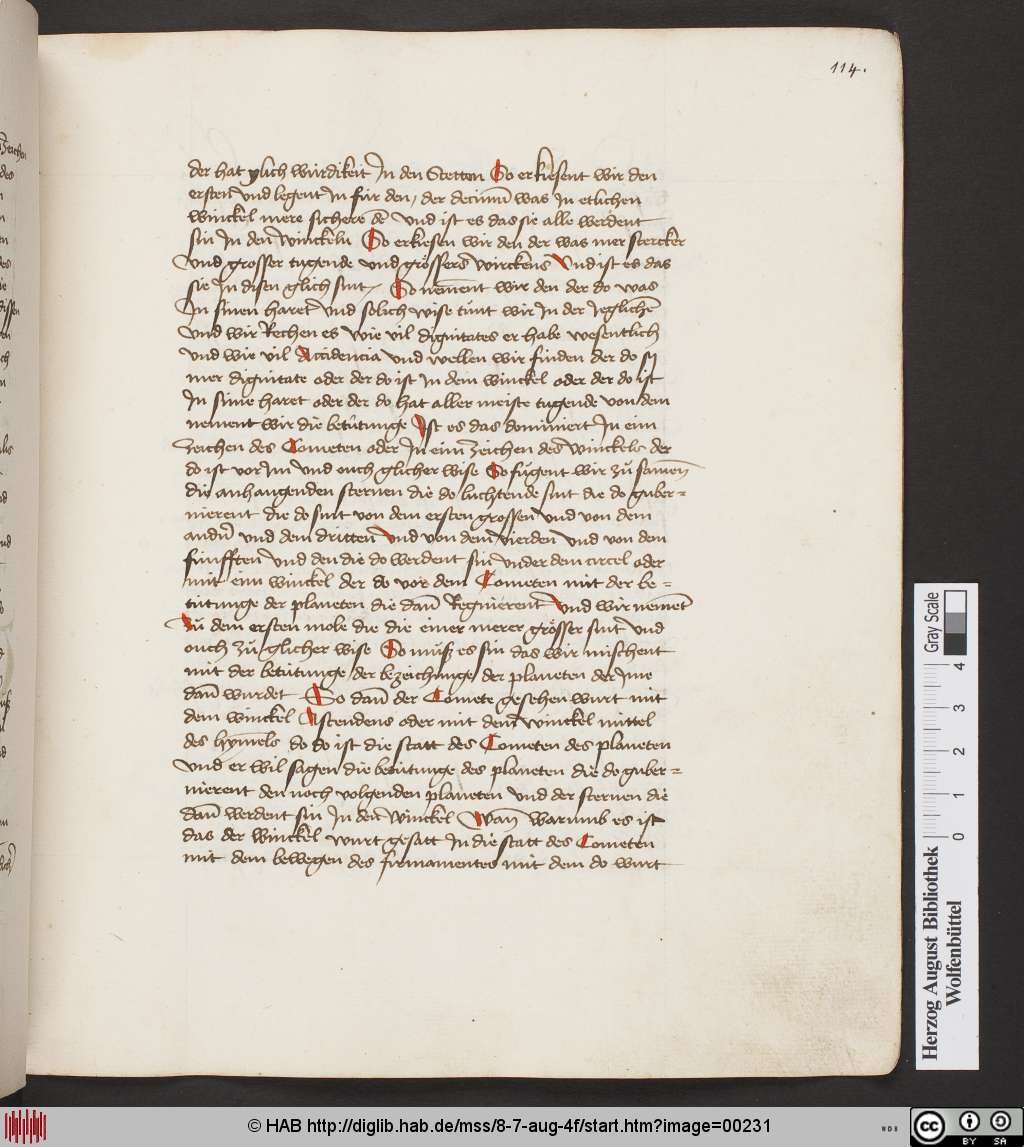 114.
der hat glich würdikeit In den Stetten So erkiesent wir den
ersten und legent In für den, der decimū was In etlichen
winckel mere sichere dē und ist es das sie alle werdent
sin In den winckeln So erkiesen wir den der was mer stercker
und grosser tugende und grössers wirckens Und ist es das
sie In disen glich sint, So nement wir den der do was
In sinen haret und solich wise tünt wir In der Jeglichē
und wir Rechen es wie vil dignitates er habe wesentlich
und wie vil Accidencia und wellen wir finden der do sy
mer dignitate oder der do ist In dem winckel oder der do ist
In sime haret oder der do hat aller meiste tugende von dem
nement wir die betütunge Ist es das dominiert In eim
zeichen des Cometen oder In eim zeichen des winckels der
do ist vor Im und ouch glicher wise So fügent wir zü samen
die anhangenden sternen die do luchtende sint die do guber=
nierent die do sint von dem ersten grossen und von dem
andn̄ und dem dritten Und von dem vierden und von dem
fünfften und den die do werdent sin under dem circel oder
mit eim winckel der do vor dem Cometen mit der be=
tütunge der planeten die dan̄ Regnierent Und wir nement
Zü dem ersten mole die die einer merer grösser sint und
ouch zü glicher wise So müß es sin das wir mischent
mit der betütunge der bezeichunge der planeten der Ime
dan̄ wurdet So dan̄ der Comete gesehen wurt mit
dem winckel Astendens oder mit dem winckel mittel
des hymels do do ist die statt des Cometen des planeten
und er wil sagen die betütunge des planeten die do guber=
nierent den noch volgenden planeten und der sternen die
dan̄ werdent sin In den winckel Wan̄ warumb es ist
das der winckel wurt gesatt In die statt des Cometen
mit dem bewegen des firmamentes mit dem do wurt
Herzog August Bibliothek
Wolfenbüttel
0 1 2 3 4
Gray Scale
© HAB http://diglib.hab.de/mss/8-7-aug-4f/start.htm?image=00231
WDB
cc BY SA